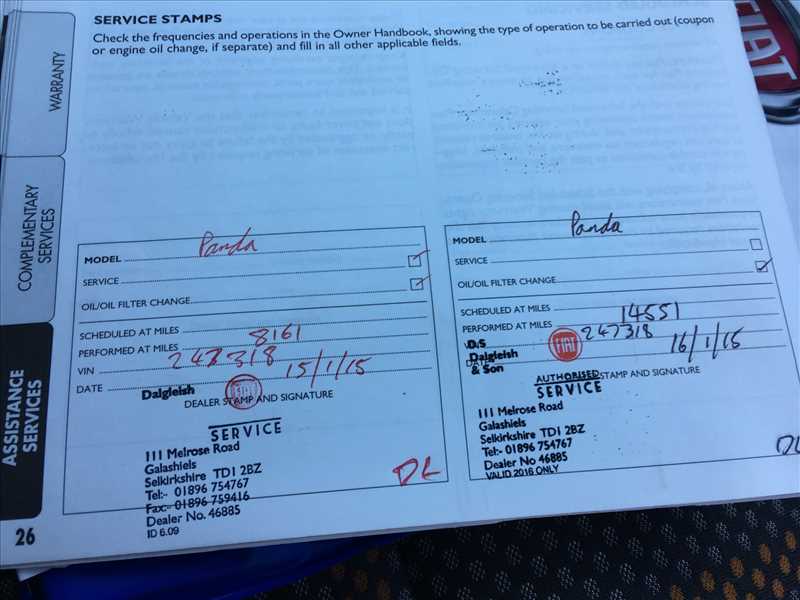 SERVICE STAMPS
Check the frequencies and operations in the Owner Handbook, showing the type of operation to be carried out (coupon
or engine oil change, if separate) and fill in all other applicable fields.
FIAT
WARRANTY
COMPLEMENTARY
SERVICES
ASSISTANCE
SERVICES
26
MODEL Panda
SERVICE
OIL/OIL FILTER CHANGE
SCHEDULED AT MILES
PERFORMED AT MILES 8161
VIN 247318
DATE 15/1/15
Dalgleish
DEALER STAMP AND SIGNATURE
SERVICE
111 Melrose Road
Galashiels
Selkirkshire TD1 2BZ
Tel:- 01896 754767
Fax:- 01896 759416
Dealer No. 46885
ID 6.09
DL
MODEL Panda
SERVICE
OIL/OIL FILTER CHANGE
SCHEDULED AT MILES
PERFORMED AT MILES 14551
247318
16/1/15
D.S
Dalgleish
& Son
FIAT
AUTHORISED STAMP AND SIGNATURE
SERVICE
111 Melrose Road
Galashiels
Selkirkshire TD1 2BZ
Tel:- 01896 754767
Dealer No 46885
VALID 2016 ONLY
DL